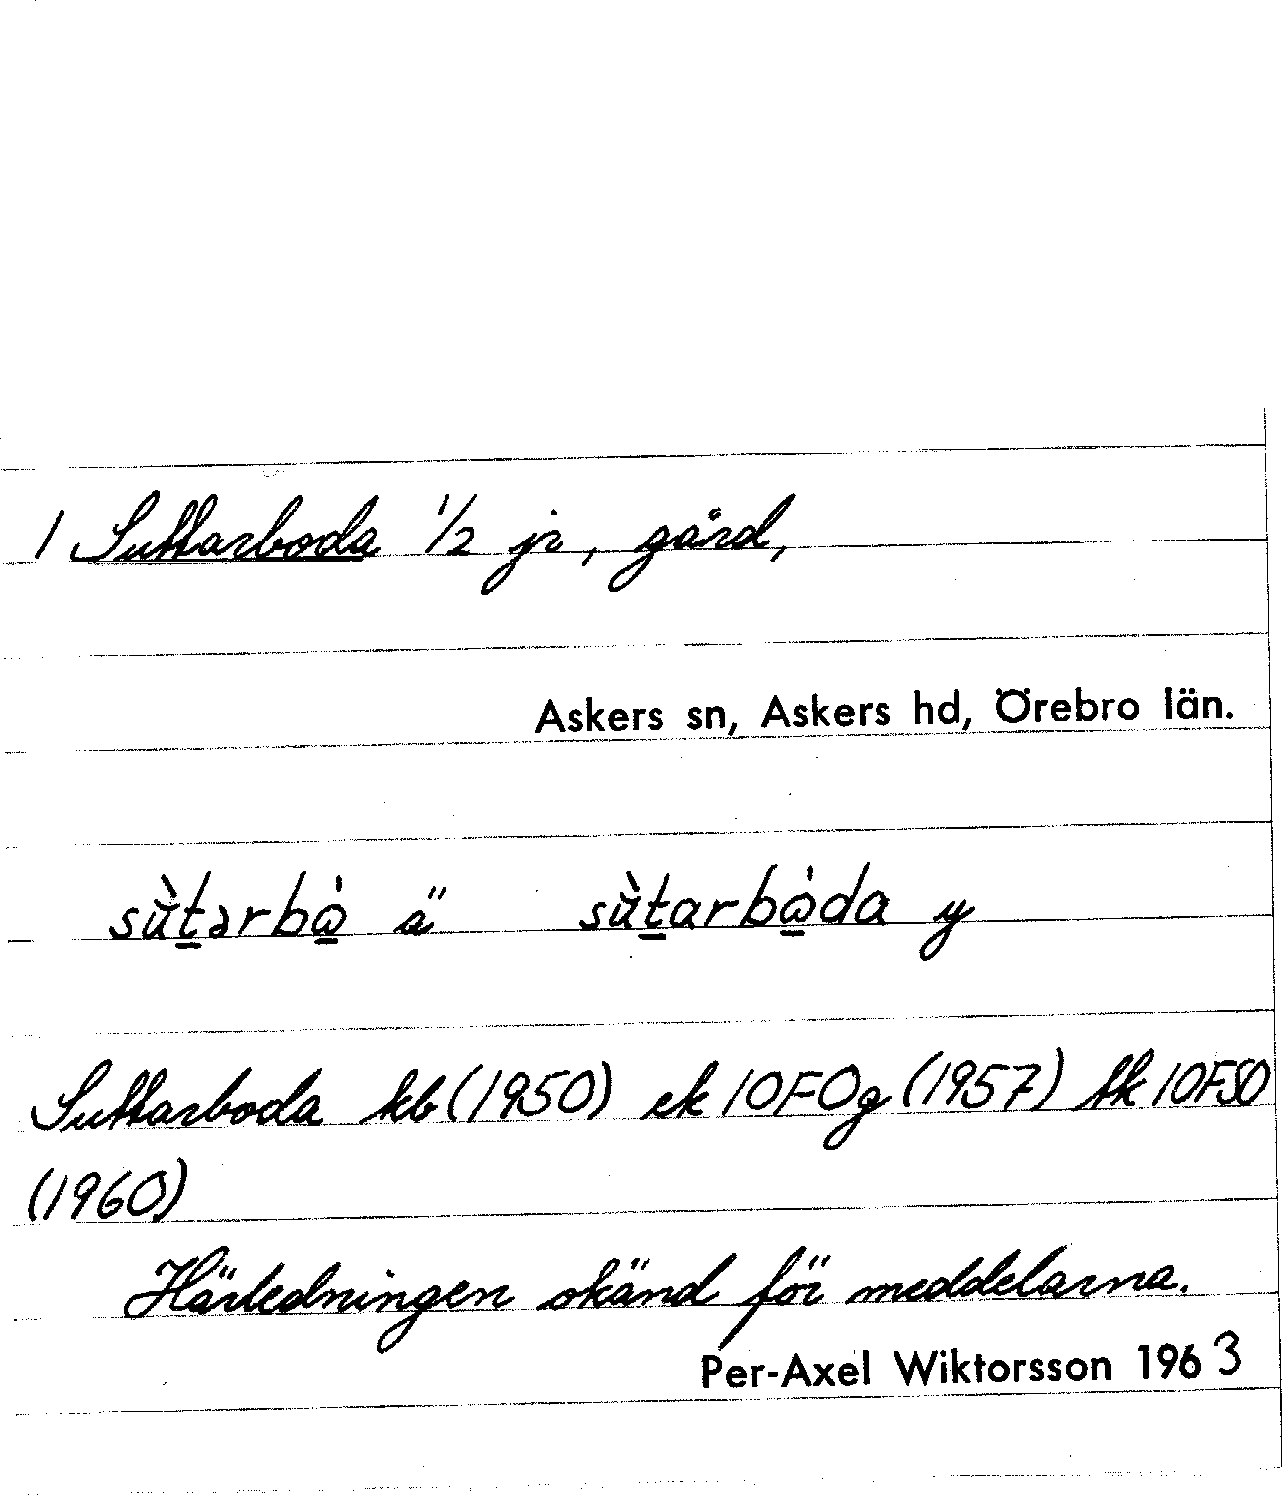 1 Suttarboda 1/2 jr, gård,
Askers sn, Askers hd, Örebro län.
sùt̲ərbὼ̲ ä sùt̲arbὼ̲da y
Suttarboda kb (1950) ek 10F0g (1957) tk 10FSO
(1960)
Härledningen okänd för meddelarna.
Per-Axel Wiktorsson 1963